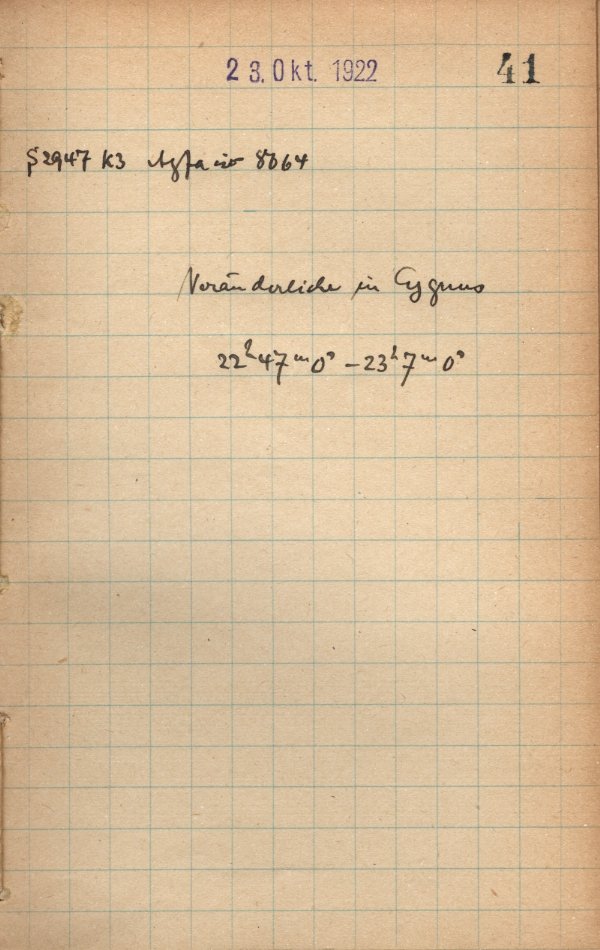 23. Okt. 1922
41
S2947 K3 Agfa iso 8064
Veränderliche in Cygnus
22ʰ47ᵐ0ˢ – 23ʰ7ᵐ0ˢ